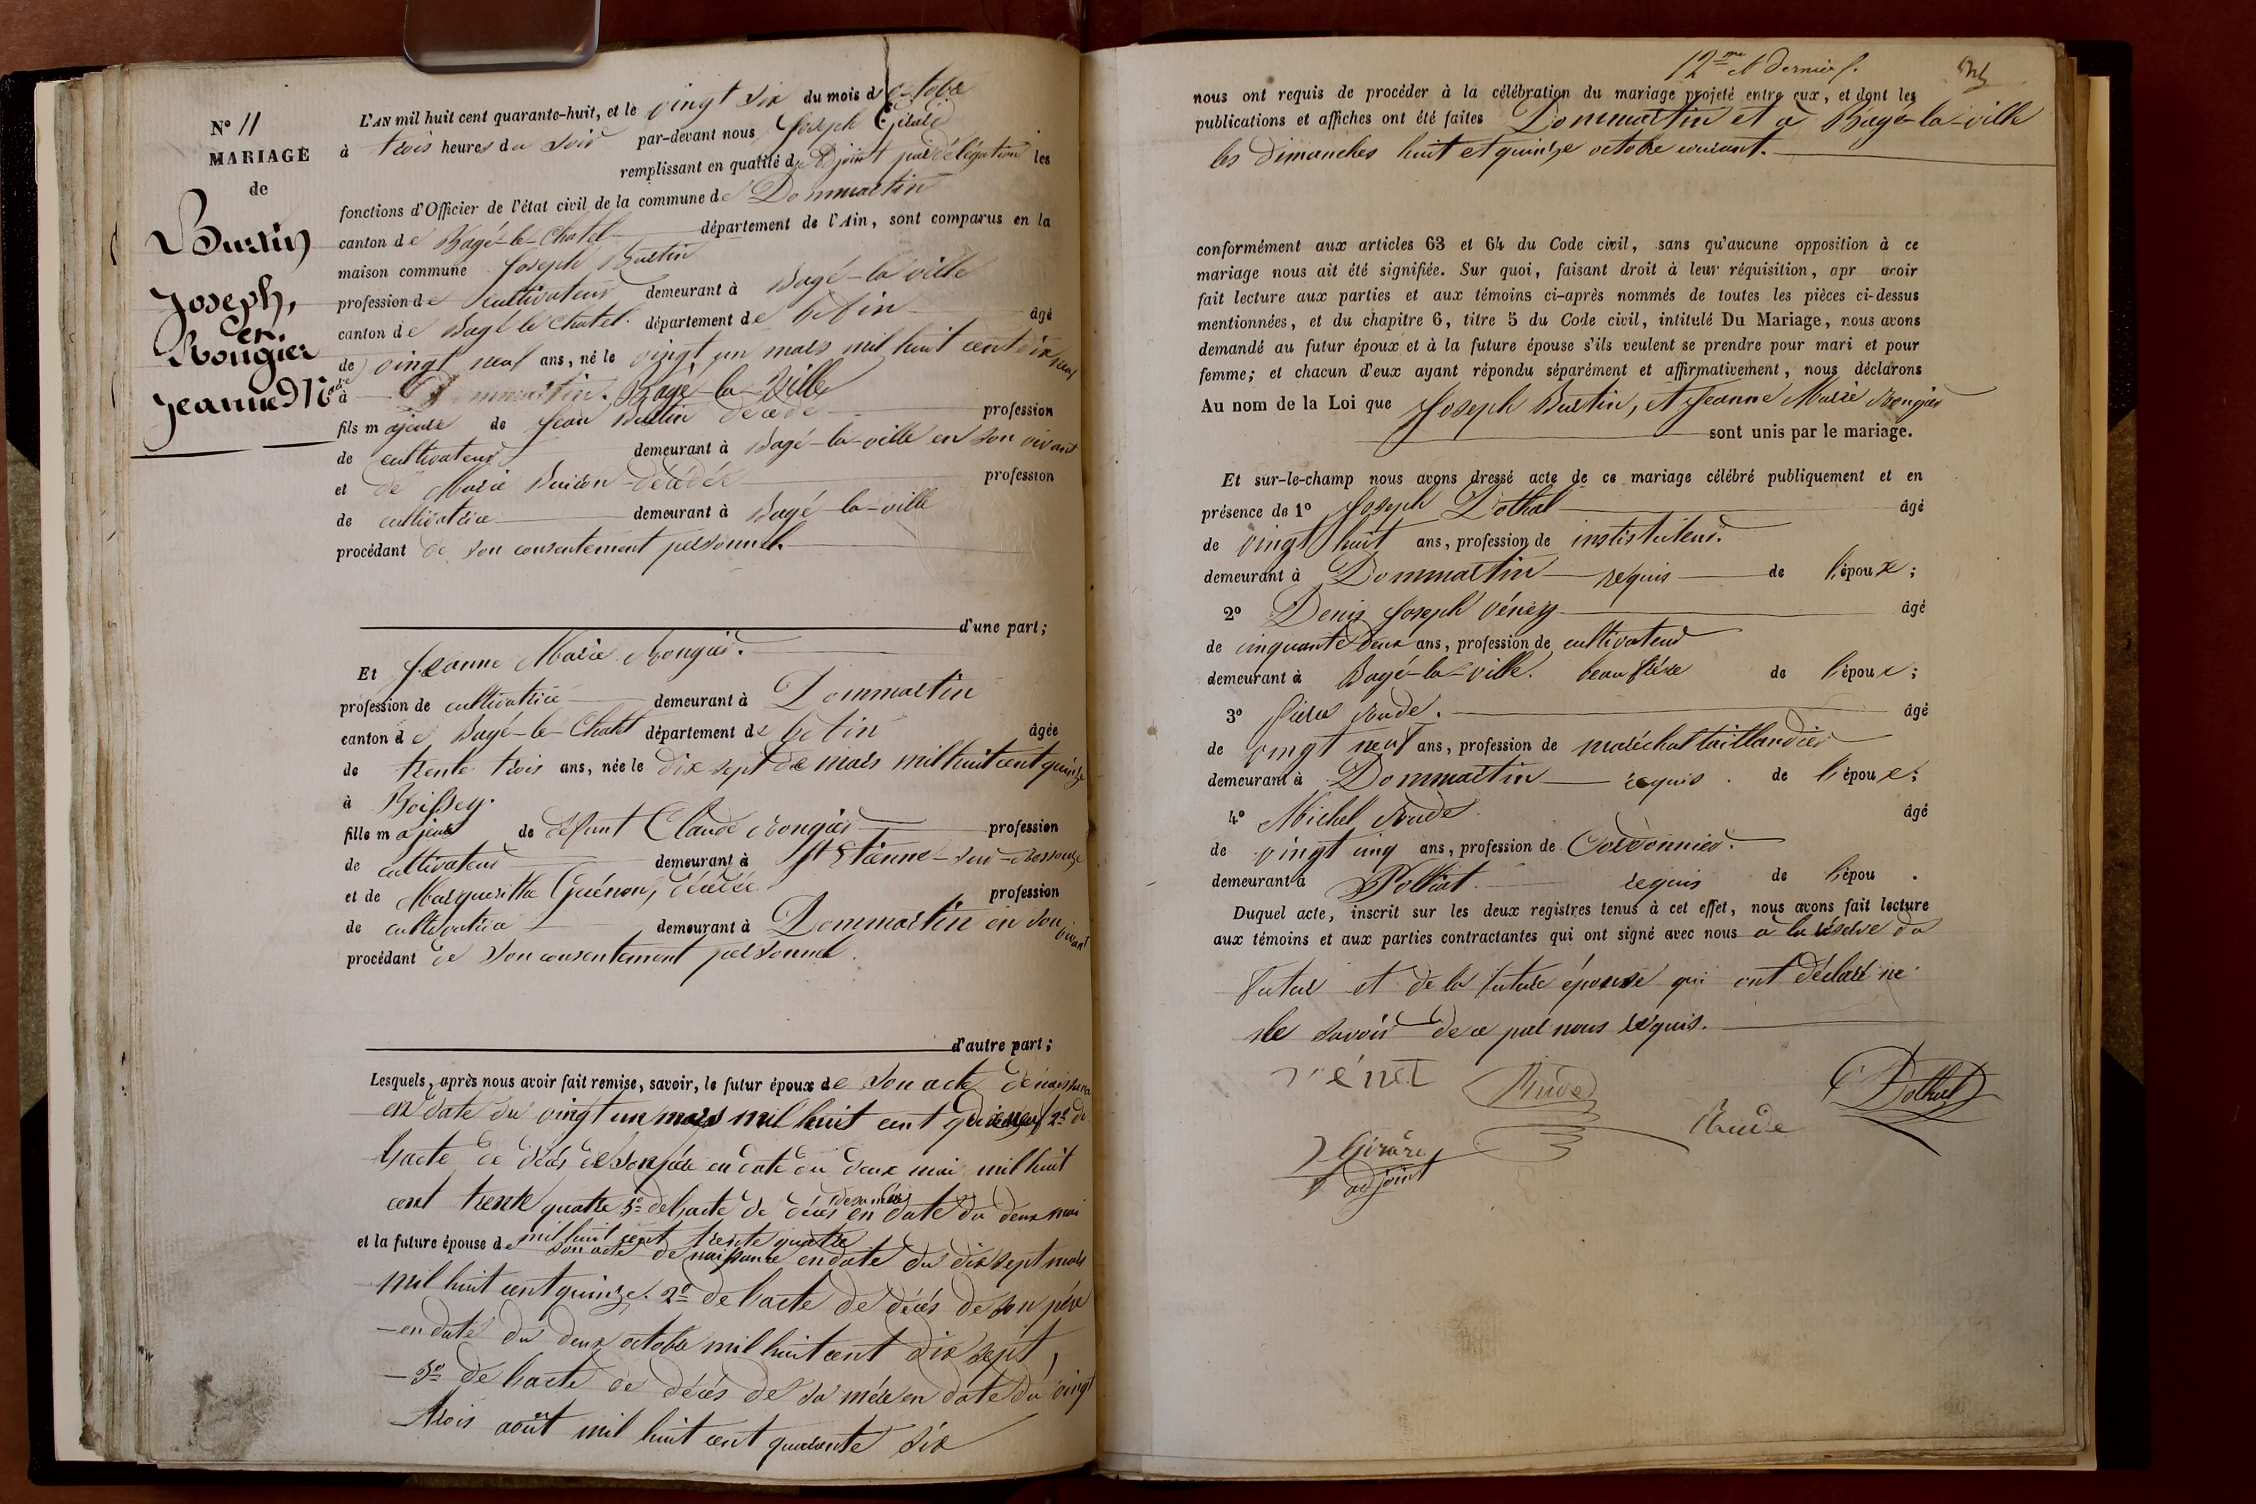 N° 11
MARIAGE
de
Burtin
Joseph,
et
Rongier
Jeanne Marie
L'AN mil huit cent quarante-huit, et le vingt six du mois d'octobre
à trois heures du soir par-devant nous Joseph Girard
remplissant en qualité d'adjoint par délégation les
fonctions d'Officier de l'état civil de la commune de Dommartin
canton de Bagé-le-Chatel département de l'Ain, sont comparus en la
maison commune Joseph Burtin
profession de cultivateur demeurant à Bagé-la-ville
canton de Bagé-le-Chatel département de l'Ain âgé
de vingt neuf ans, né le vingt un mars mil huit cent dix neuf
à Dommartin. Bagé-la-Ville
fils majeur de Jean Burtin décédé profession
de cultivateur demeurant à Bagé-la-ville en son vivant
et de Marie décédée profession
de cultivatrice demeurant à Bagé-la-ville
procédant de son consentement personnel.
d'une part;
Et Jeanne Marie Rongier.
profession de cultivatrice demeurant à Dommartin
canton de Bagé-le-Chatel département de l'Ain âgée
de trente trois ans, née le dix sept de mars mil huit cent quinze
à Boissey.
fille majeure de défunt Claude Rongier profession
de cultivateur demeurant à St Etienne-sur-Ressouze
et de Marguerithe Guénon, décédée profession
de cultivatrice demeurant à Dommartin en son vivant
procédant de son consentement personnel.
d'autre part;
Lesquels, après nous avoir fait remise, savoir, le futur époux de son acte de naissance
en date du vingt un mars mil huit cent dix neuf 2° de
l'acte de décès de son père en date du deux mai mil huit
cent trente quatre 3° de l'acte de décès de sa mère en date du deux mai
mil huit cent trente quatre
et la future épouse de son acte de naissance en date du dix sept mars
mil huit cent quinze. 2° de l'acte de décès de son père
en date du deux octobre mil huit cent dix sept,
3° de l'acte de décès de sa mère en date du vingt
trois août mil huit cent quarante six
12me et dernier f.
nous ont requis de procéder à la célébration du mariage projeté entre eux, et dont les
publications et affiches ont été faites Dommartin et à Bagé-la-ville
les dimanches huit et quinze octobre courant.
conformément aux articles 63 et 64 du Code civil, sans qu'aucune opposition à ce
mariage nous ait été signifiée. Sur quoi, faisant droit à leur réquisition, apr avoir
fait lecture aux parties et aux témoins ci-après nommés de toutes les pièces ci-dessus
mentionnées, et du chapitre 6, titre 5 du Code civil, intitulé Du Mariage, nous avons
demandé au futur époux et à la future épouse s'ils veulent se prendre pour mari et pour
femme; et chacun d'eux ayant répondu séparément et affirmativement, nous déclarons
Au nom de la Loi que Joseph Burtin, et Jeanne Marie Rongier
sont unis par le mariage.
Et sur-le-champ nous avons dressé acte de ce mariage célébré publiquement et en
présence de 1° Joseph Dothal âgé
de vingt huit ans, profession de instituteur.
demeurant à Dommartin requis de l'époux;
2° Denis Joseph Vénet âgé
de cinquante deux ans, profession de cultivateur
demeurant à Bagé-la-ville. beau frère de l'époux;
3° Pierre Rude. âgé
de vingt neuf ans, profession de maréchal taillandier
demeurant à Dommartin requis de l'épouse;
4° Michel Rude âgé
de vingt cinq ans, profession de Cordonnier.
demeurant à Polliat requis de l'épou .
Duquel acte, inscrit sur les deux registres tenus à cet effet, nous avons fait lecture
aux témoins et aux parties contractantes qui ont signé avec nous à la réserve du
futur et de la future épouse qui ont déclaré ne
le savoir de ce par nous requis.
Vénet Rude Dothal
Rude
J Girard
adjoint